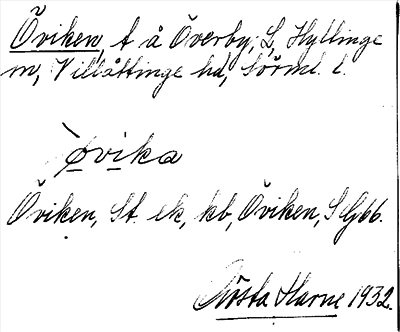 Öviken, t å Överby, L, Hyllinge
sn, Villåttinge hd, Sörml. l.
`øvika
Öviken, St. ek, kb, Öviken, S G66.
Gösta Harne 1932.